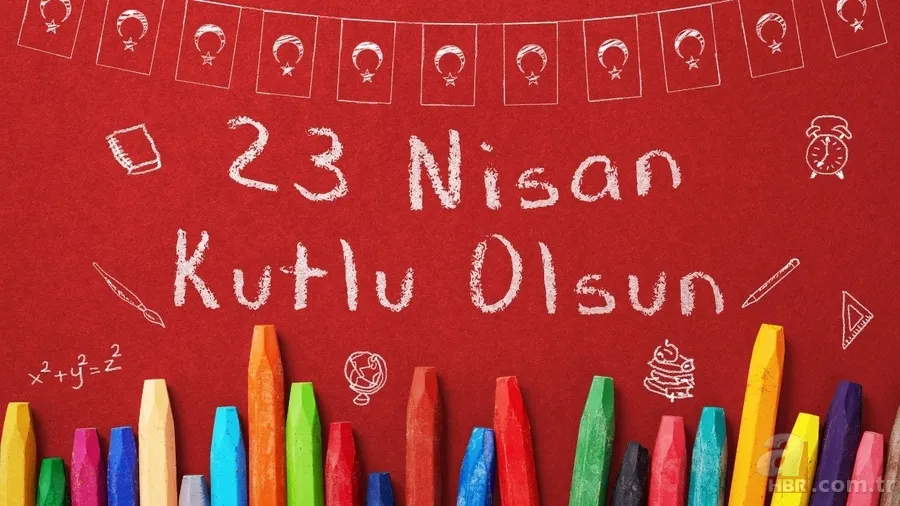 23 Nisan
Kutlu Olsun
x²+y²=z²
a
HBR.com.tr